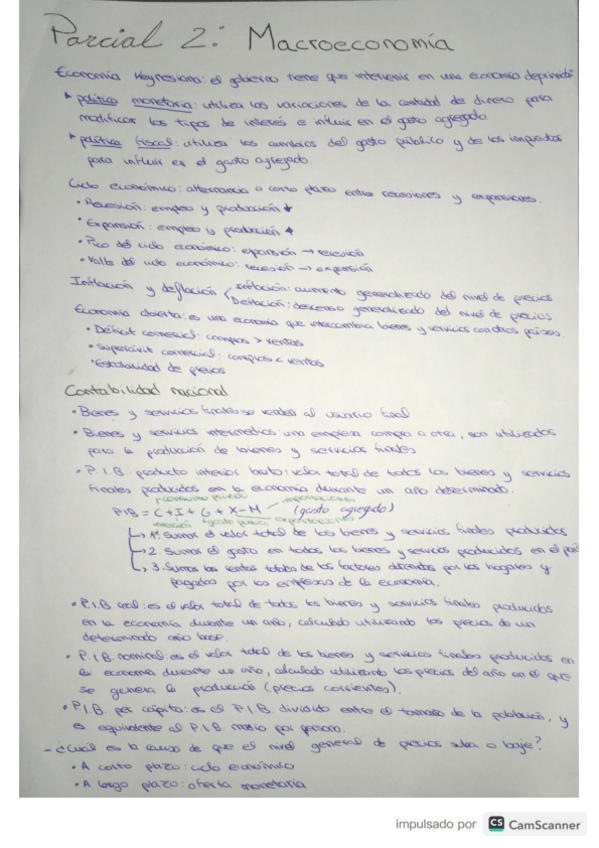 Parcial 2: Macroeconomía
Economía Keynesiana: el gobierno tiene que intervenir en una economía deprimida
▸ política monetaria: utiliza las variaciones de la cantidad de dinero para
modificar los tipos de interés e influir en el gasto agregado
▸ política fiscal: utiliza los cambios del gasto público y de los impuestos
para influir en el gasto agregado.
Ciclo económico: alternancia a corto plazo entre recesiones y expansiones.
• Recesión: empleo y producción ↓
• Expansión: empleo y producción ↑
• Pico del ciclo económico: expansión → recesión
• Valle del ciclo económico: recesión → expansión
Inflación y deflación Inflación: aumento generalizado del nivel de precios
Deflación: descenso generalizado del nivel de precios
Economía abierta: es una economía que intercambia bienes y servicios con otros países.
• Déficit comercial: compras > ventas
• Superávit comercial: compras < ventas
• Estabilidad de precios
Contabilidad nacional
• Bienes y servicios finales: se venden al usuario final
• Bienes y servicios intermedios: una empresa compra a otra, son utilizados
para la producción de bienes y servicios finales
• P.I.B: producto interior bruto: valor total de todos los bienes y servicios
finales producidos en la economía durante un año determinado.
consumo privado importaciones
PIB = C + I + G + X - M (gasto agregado)
inversión gasto público exportaciones
1. Sumar el valor total de los bienes y servicios finales producidos
2. Sumar el gasto en todos los bienes y servicios producidos en el país
3. Sumar las rentas totales de los factores obtenidas por los hogares y
pagadas por las empresas de la economía.
• P.I.B real: es el valor total de todos los bienes y servicios finales producidos
en la economía durante un año, calculado utilizando los precios de un
determinado año base.
• P.I.B. nominal: es el valor total de los bienes y servicios finales producidos en
la economía durante un año, calculado utilizando los precios del año en el que
se genera la producción (precios corrientes).
• P.I.B. per cápita: es el P.I.B. dividido entre el tamaño de la población, y
es equivalente al P.I.B. medio por persona.
- ¿Cuál es la causa de que el nivel general de precios suba o baje?
• A corto plazo: ciclo económico
• A largo plazo: oferta monetaria
impulsado por CS CamScanner